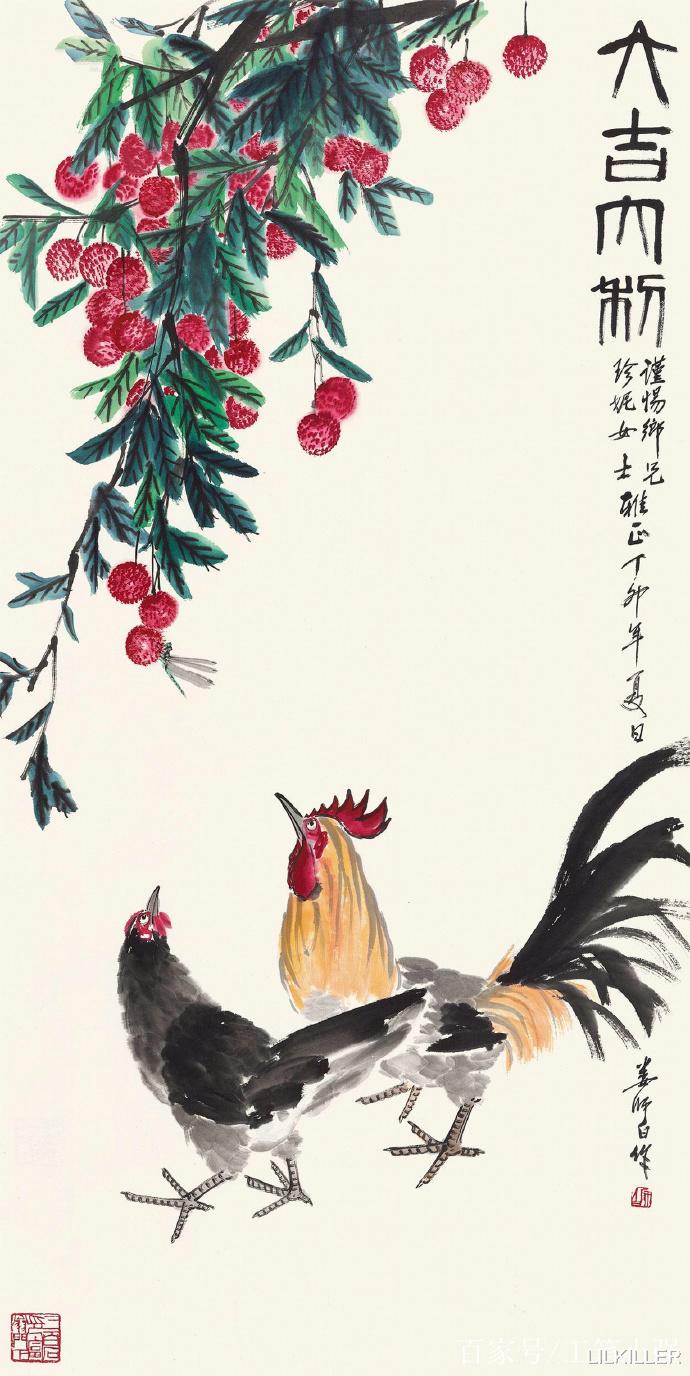 大吉大利
谨惕鄉兄
珍妮女士
雅正丁卯年夏日
娄师白作
百家号/工笔
LILKILLER